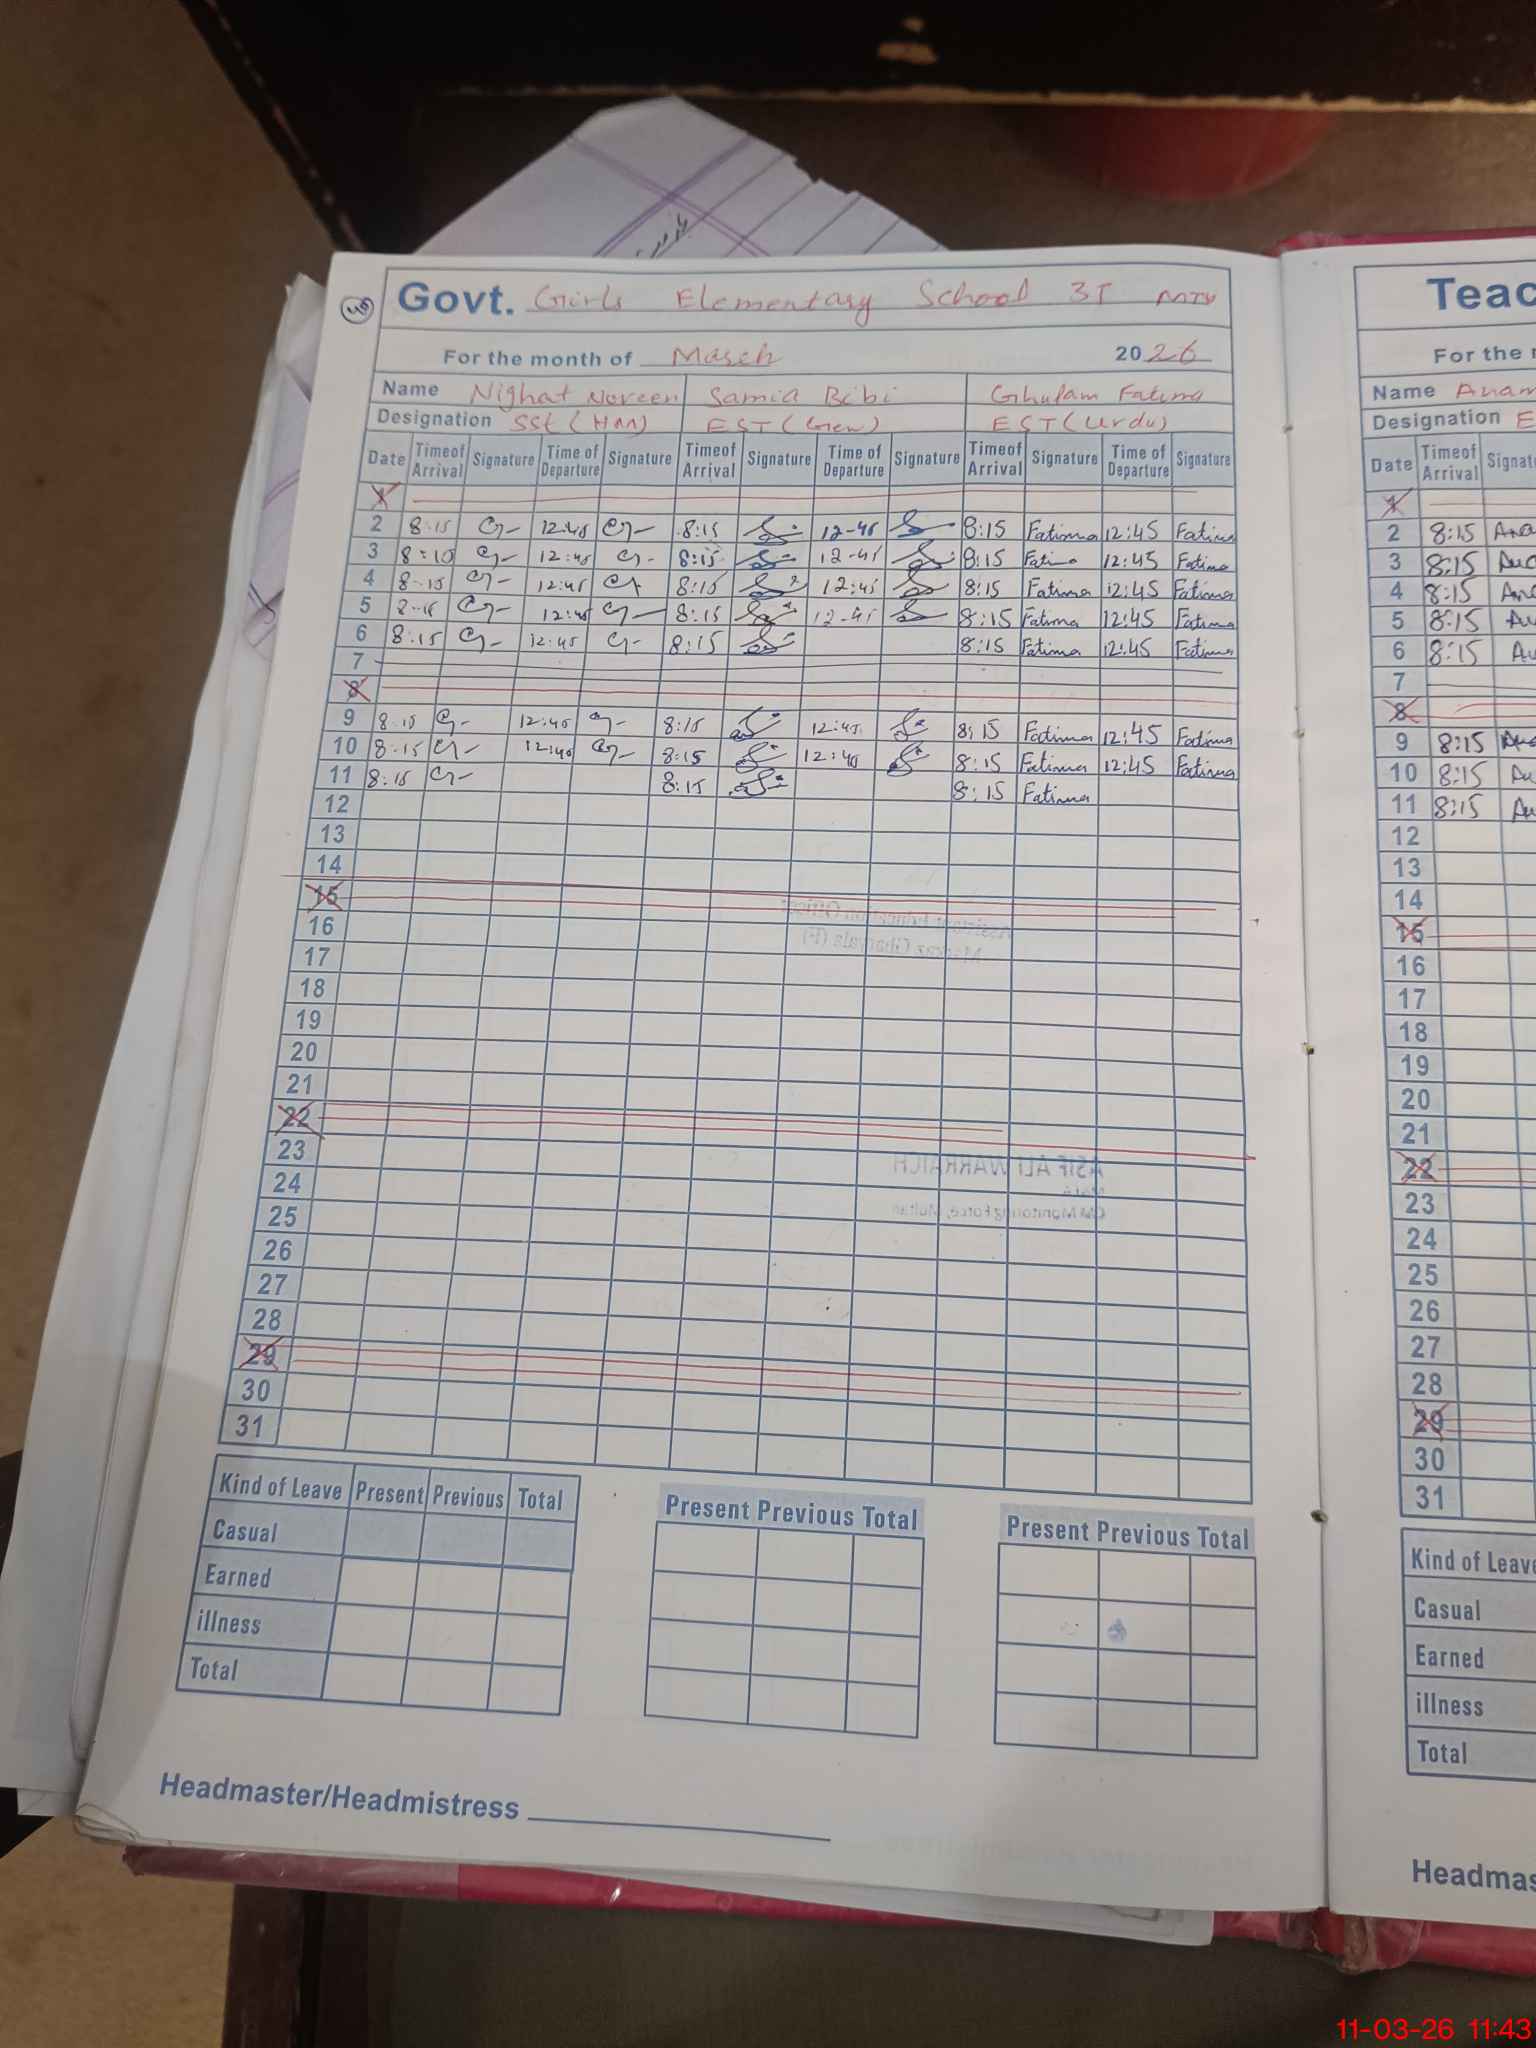 Govt. Girls Elementary School 3T MTN
For the month of March 2026
Name Nighat Noreen Samia Bibi Ghulam Fatima
Designation SSt (Hm) EST (Gen) EST (Urdu)
Date Timeof Arrival Signature Time of Departure Signature Timeof Arrival Signature Time of Departure Signature Timeof Arrival Signature Time of Departure Signature
1
2 8:15 12:45 8:15 12-45 8:15 Fatima 12:45 Fatima
3 8:10 12:45 8:15 12-45 8:15 Fatima 12:45 Fatima
4 8-15 12:45 8:15 12:45 8:15 Fatima 12:45 Fatima
5 8-15 12:45 8:15 12-45 8:15 Fatima 12:45 Fatima
6 8:15 12:45 8:15 8:15 Fatima 12:45 Fatima
7
8
9 8:15 12:45 8:15 12:45 8:15 Fatima 12:45 Fatima
10 8:15 12:45 8:15 12:45 8:15 Fatima 12:45 Fatima
11 8:15 8:15 8:15 Fatima
12
13
14
15
16
17
18
19
20
21
22
23
24
25
26
27
28
29
30
31
Kind of Leave Present Previous Total Present Previous Total Present Previous Total
Casual
Earned
illness
Total
Headmaster/Headmistress
Assistant Education Officer
ASIF ALI WARRAICH
CM Monitoring Force, Multan
Teac
For the
Name Anam
Designation E
Date Timeof Arrival Signat
1
2 8:15
3 8:15
4 8:15
5 8:15
6 8:15
7
8
9 8:15
10 8:15
11 8:15
12
13
14
15
16
17
18
19
20
21
22
23
24
25
26
27
28
29
30
31
Kind of Leave
Casual
Earned
illness
Total
Headmas
11-03-26 11:43